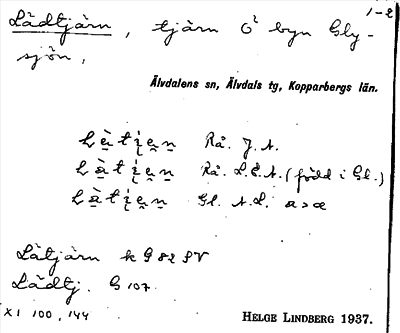 1-2
Lådtjärn, tjärn O² byn Gly-
sjön,
Älvdalens sn, Älvdals tg, Kopparbergs län.
Rå. J. A.
Rå. L. E. A. (född i Gl.)
Gl. A. L. a > æ
Låtjärn k G 82 SV
Lådtj. G 107.
XI 100, 144
HELGE LINDBERG 1937.